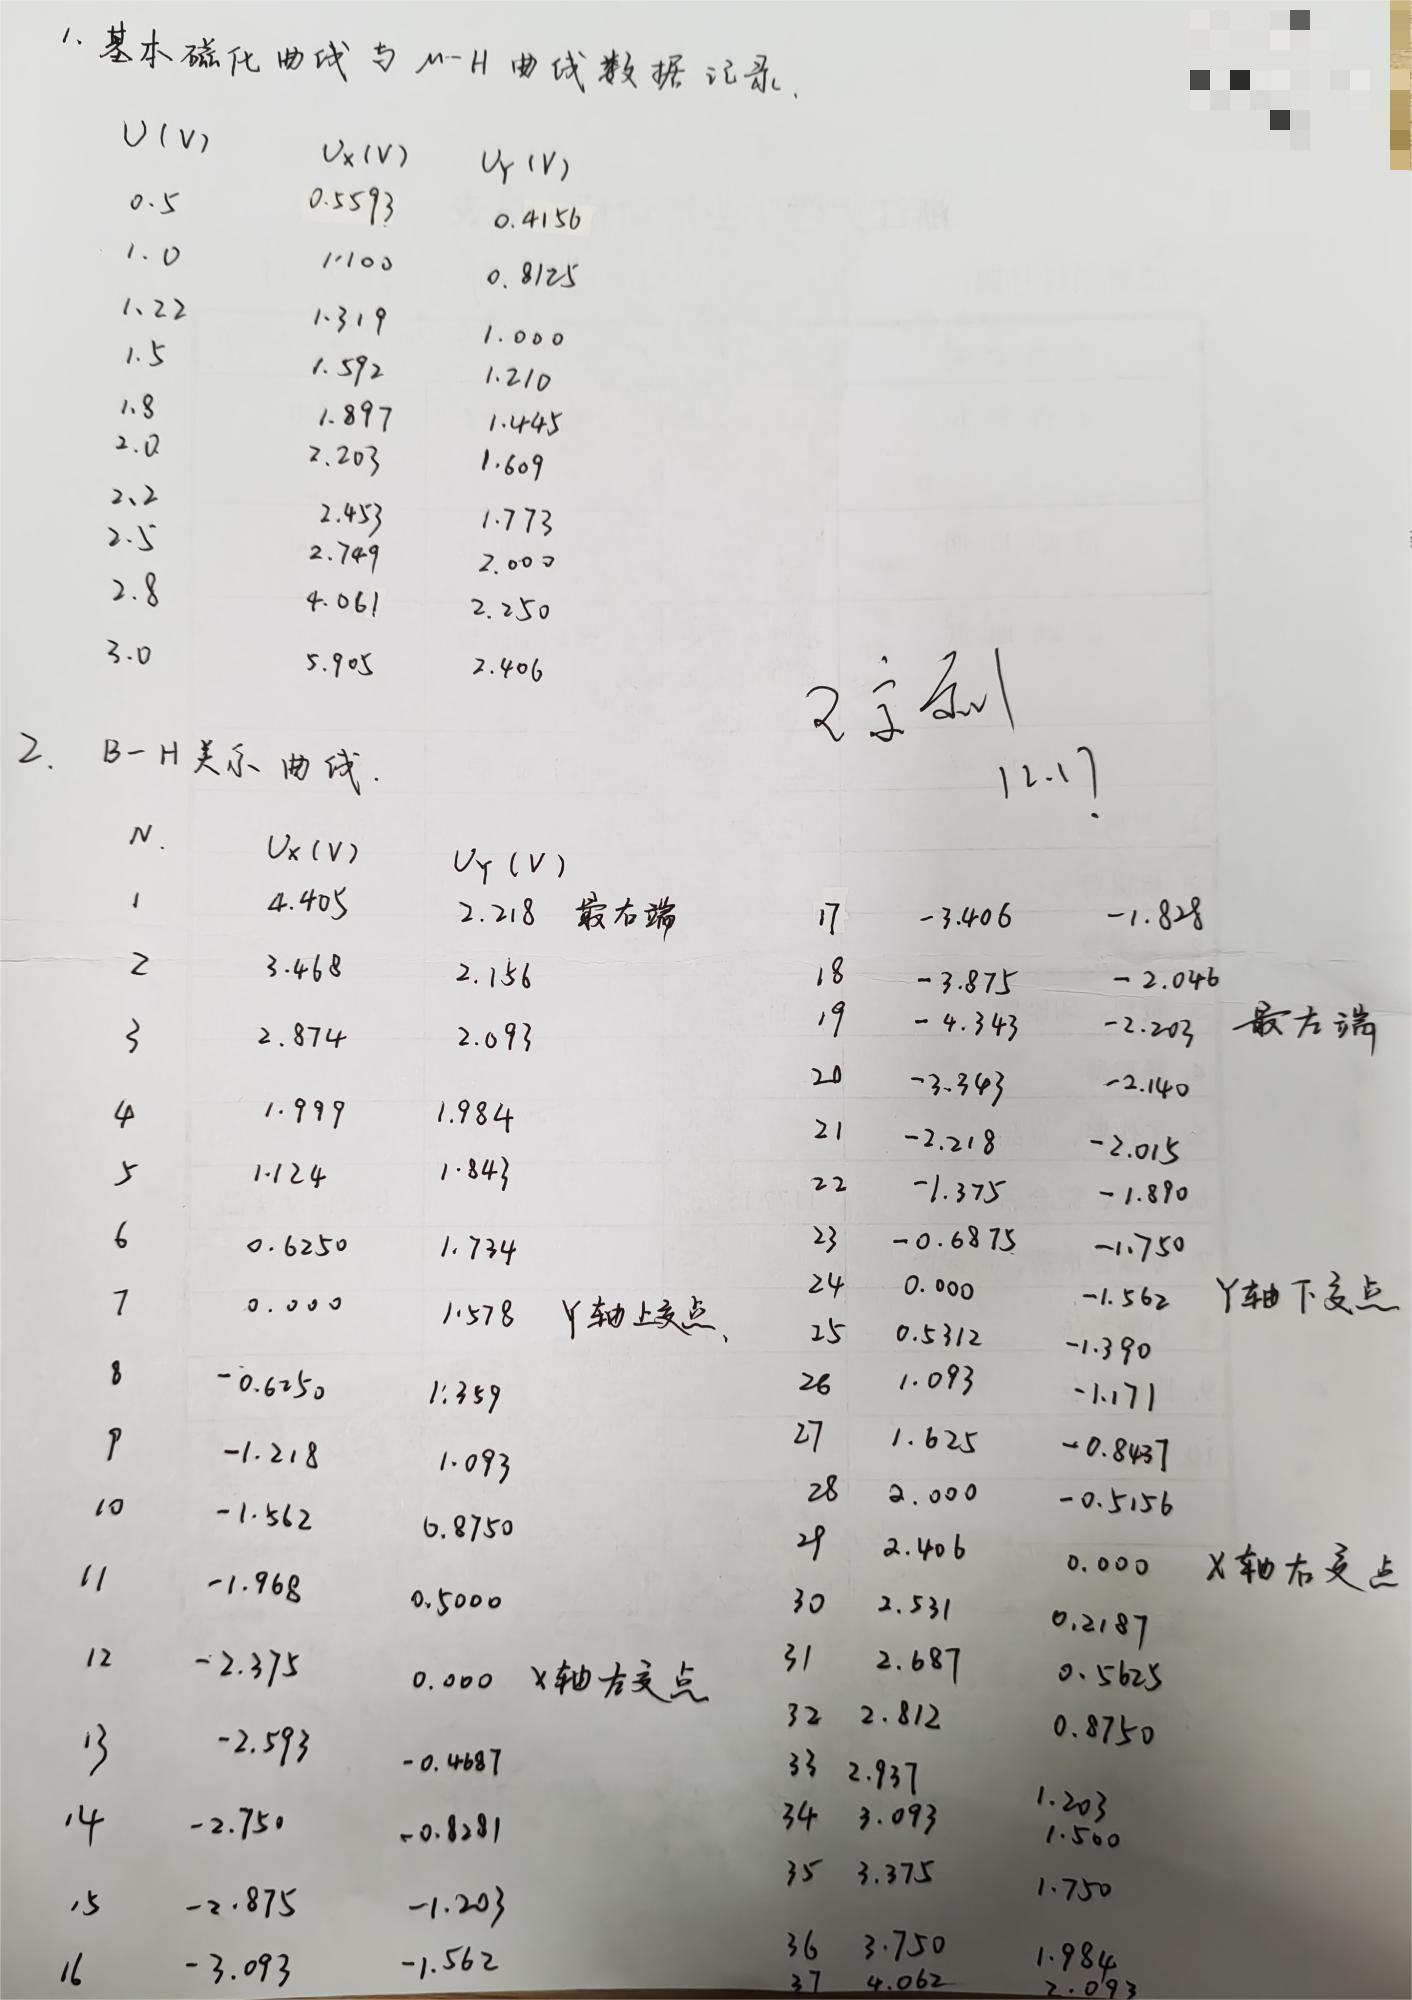 1. 基本磁化曲线与μ-H曲线数据记录.
U(V) Ux(V) UY(V)
0.5 0.5593 0.4156
1.0 1.100 0.8125
1.22 1.319 1.000
1.5 1.592 1.210
1.8 1.897 1.445
2.0 2.203 1.609
2.2 2.453 1.773
2.5 2.749 2.000
2.8 4.061 2.250
3.0 5.905 2.406
12.17
2. B-H关系曲线.
N. Ux(V) UY(V)
1 4.405 2.218 最右端
2 3.468 2.156
3 2.874 2.093
4 1.999 1.984
5 1.124 1.843
6 0.6250 1.734
7 0.000 1.578 Y轴上交点、
8 -0.6250 1.359
9 -1.218 1.093
10 -1.562 0.8750
11 -1.968 0.5000
12 -2.375 0.000 X轴左交点
13 -2.593 -0.4687
14 -2.750 -0.8281
15 -2.875 -1.203
16 -3.093 -1.562
17 -3.406 -1.828
18 -3.875 -2.046
19 -4.343 -2.203 最左端
20 -3.343 -2.140
21 -2.218 -2.015
22 -1.375 -1.890
23 -0.6875 -1.750
24 0.000 -1.562 Y轴下交点
25 0.5312 -1.390
26 1.093 -1.171
27 1.625 -0.8437
28 2.000 -0.5156
29 2.406 0.000 X轴右交点
30 2.531 0.2187
31 2.687 0.5625
32 2.812 0.8750
33 2.937 1.203
34 3.093 1.500
35 3.375 1.750
36 3.750 1.984
37 4.062 2.093